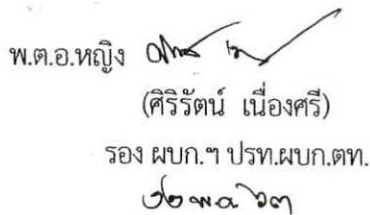 พ.ต.อ.หญิง
(ศิริรัตน์ เนื่องศรี)
รอง ผบก.ฯ ปรท.ผบก.ตท.
๒๒ พ.ค. ๖๓